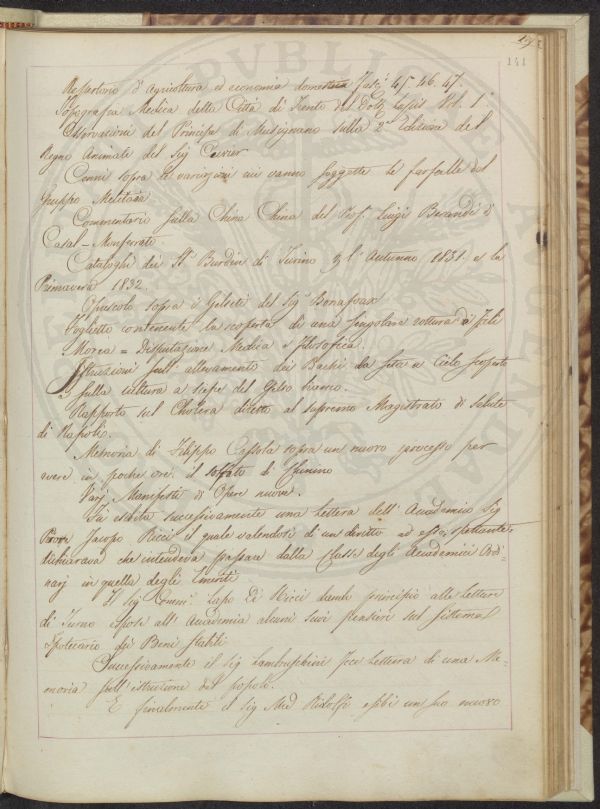 141
Repertorio d'Agricoltura ed economia domestica Fasc.i 45. 46. 47.
Topografia Medica della Città di Trento del Dott. Vol. 1.
Osservazioni del Principe di Musignano sulla 2.a Edizione del
Regno Animale del Sig
Cenni sopra le variazioni cui vanno soggette le farfalle del
Gruppo
Commentario sulla China China del Prof. Luigi
Casal-Monferrato.
Cataloghi dei Burdin di Torino l'Autunno 1831. e la
Primavera 1832.
Opuscolo sopra i Gelseti del Sig. Bonafoux
Foglietto contenente la scoperta di una singolare rottura di
Morea = Disputazione Medica e Filosofica.
Istruzioni sull'allevamento dei Bachi da seta a Cielo scoperto
e sulla cultura a siepe del Gelso bianco.
Rapporto sul Cholera diretto al supremo Magistrato di Salute
di Napoli.
Memoria di Filippo Cassola sopra un nuovo processo per
avere in poche ore il solfato di Chinino
Varj Manifesti di Opere nuove.
Fu esibita successivamente una Lettera dell'Accademico Sig
Jacopo Ricci il quale valendosi di un diritto ad esso spettante
dichiarava che intendeva passare dalla Classe degli Accademici Ordi-
narj in quella degli Emeriti
Il Sig Comm. Lapo De Ricci dando principio alle Letture
di Turno espose all'Accademia alcuni suoi pensieri sul sistema
Ipotecario dei Beni stabili.
Successivamente il Sig Lambruschini fece Lettura di una Me-
moria sull'istruzione del popolo.
E finalmente il Sig Ridolfi esibì un suo nuovo